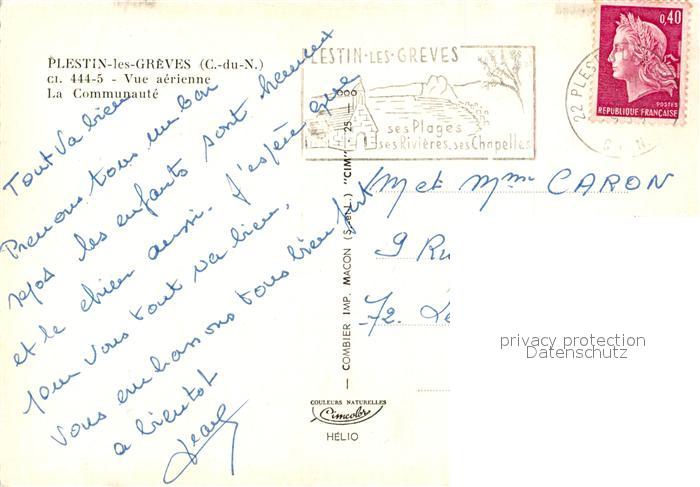 PLESTIN-les-GRÈVES (C.-du-N.)
CI. 444-5 - Vue aérienne
La Communauté
Tout va bien
Prenons tous un bon
repos les enfants sont heureux
et le chien aussi. J'espère que
pour vous tout va bien,
vous embrassons tous bien fort
a bientot
Jean
COMBIER IMP. MACON (S.-et-L.) "CIM"
COULEURS NATURELLES
Cimcolor
HÉLIO
PLESTIN-LES-GREVES
ses Plages
ses Rivières, ses Chapelles
22 PLEST
0,40
POSTES
REPUBLIQUE FRANÇAISE
M et Mme CARON
9 Ru
72.
privacy protection
Datenschutz